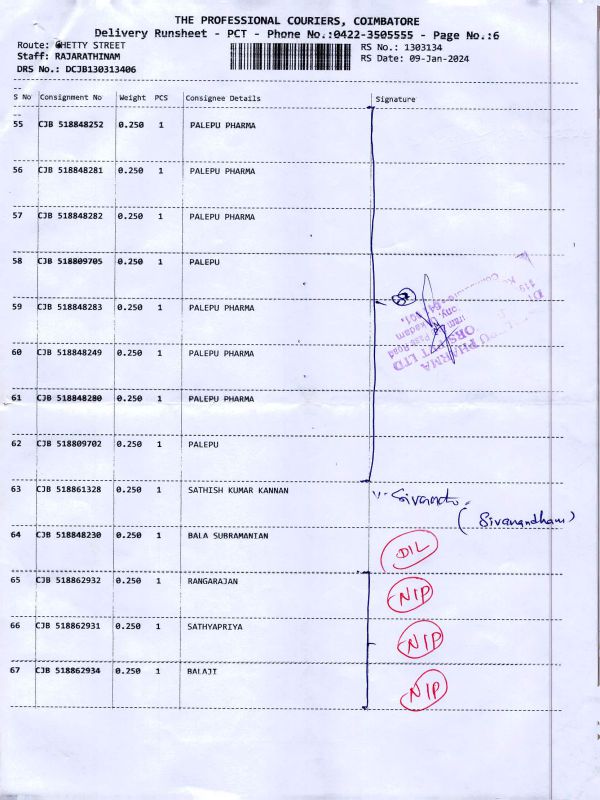 THE PROFESSIONAL COURIERS, COIMBATORE
Delivery Runsheet - PCT - Phone No.:0422-3505555 - Page No.:6
Route: GHETTY STREET
Staff: RAJARATHINAM
DRS No.: DCJB130313406
RS No.: 1303134
RS Date: 09-Jan-2024
S No Consignment No Weight PCS Consignee Details Signature
55 CJB 518848252 0.250 1 PALEPU PHARMA
56 CJB 518848281 0.250 1 PALEPU PHARMA
57 CJB 518848282 0.250 1 PALEPU PHARMA
58 CJB 518809705 0.250 1 PALEPU
59 CJB 518848283 0.250 1 PALEPU PHARMA
60 CJB 518848249 0.250 1 PALEPU PHARMA
61 CJB 518848280 0.250 1 PALEPU PHARMA
62 CJB 518809702 0.250 1 PALEPU
63 CJB 518861328 0.250 1 SATHISH KUMAR KANNAN
(Sivanandham)
64 CJB 518848230 0.250 1 BALA SUBRAMANIAN DIL
65 CJB 518862932 0.250 1 RANGARAJAN NIP
66 CJB 518862931 0.250 1 SATHYAPRIYA NIP
67 CJB 518862934 0.250 1 BALAJI NIP